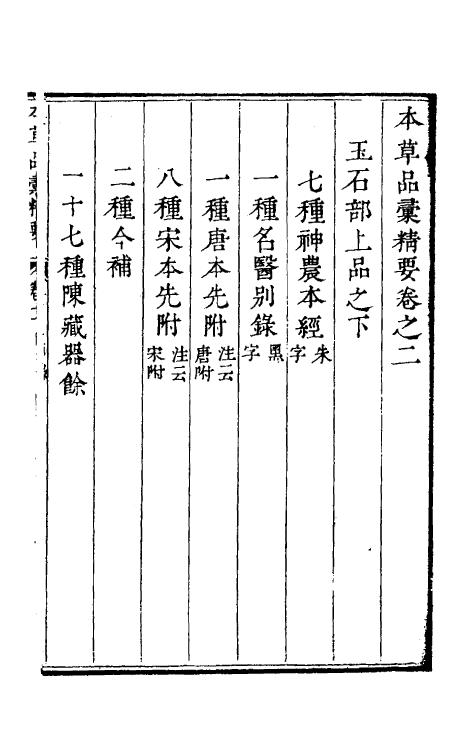 本草品彙精要卷之二
玉石部上品之下
七種神農本經朱字
一種名醫別錄黑字
一種唐本先附注云唐附
八種宋本先附注云宋附
二種今補
一十七種陳藏器餘
本草品彙精要